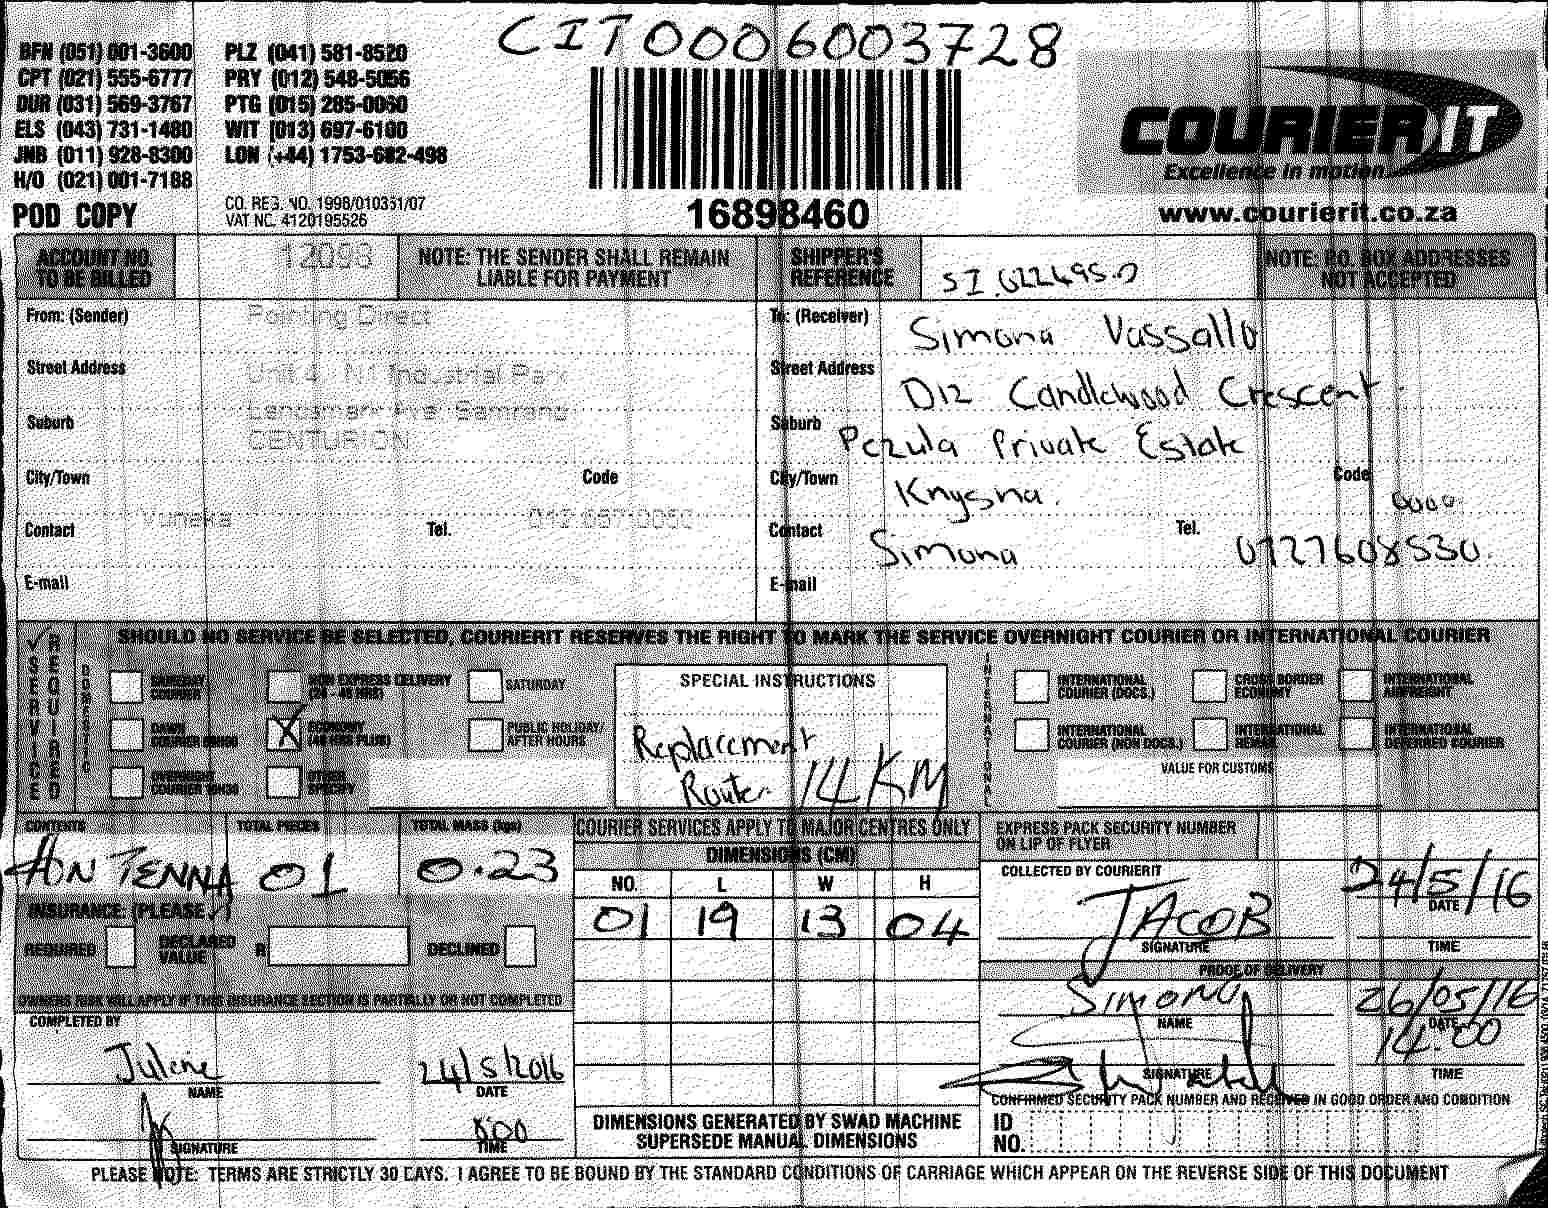 CIT0006003728
BFN (051) 001-3600 PLZ (041) 581-8520
CPT (021) 555-6777 PRY (012) 548-5056
DUR (031) 569-3767 PTG (015) 285-0060
ELS (043) 731-1480 WIT (013) 697-6100
JNB (011) 928-8300 LON (+44) 1753-682-498
H/O (021) 001-7188
POD COPY
CO. REG. NO. 1998/010351/07
VAT NO. 4120195526
16898460
COURIER IT
Excellence in motion
www.courierit.co.za
ACCOUNT NO. TO BE BILLED 12093
NOTE: THE SENDER SHALL REMAIN LIABLE FOR PAYMENT
SHIPPER'S REFERENCE
NOTE: P.O. BOX ADDRESSES NOT ACCEPTED
From: (Sender) Pointing Direct
Street Address Unit 4 N1 Industrial Park
Suburb Samrand
CENTURION
City/Town Code
Contact Tel.
E-mail
To: (Receiver) Simona Vassallo
Street Address D12 Candlewood Crescent.
Suburb Pezula Private Estate
City/Town Knysna. Code 0000
Contact Simona Tel. 0727608530.
E-mail
✓ SERVICE REQUIRED
SHOULD NO SERVICE BE SELECTED, COURIERIT RESERVES THE RIGHT TO MARK THE SERVICE OVERNIGHT COURIER OR INTERNATIONAL COURIER
DOMESTIC
SAMEDAY COURIER
NON EXPRESS DELIVERY (24 - 48 HRS)
SATURDAY
DAWN COURIER
X ECONOMY (48 HRS PLUS)
PUBLIC HOLIDAY/ AFTER HOURS
OVERNIGHT COURIER
OTHER SPECIFY
SPECIAL INSTRUCTIONS
Replacement
Router. 14 KM
INTERNATIONAL
INTERNATIONAL COURIER (DOCS.)
CROSS BORDER ECONOMY
INTERNATIONAL AIRFREIGHT
INTERNATIONAL COURIER (NON DOCS.)
INTERNATIONAL
INTERNATIONAL DEFERRED COURIER
VALUE FOR CUSTOMS
CONTENTS TOTAL PIECES TOTAL MASS (kgs)
ANTENNA 01 0.23
INSURANCE: (PLEASE ✓)
REQUIRED DECLARED VALUE R DECLINED
OWNERS RISK WILL APPLY IF THIS INSURANCE SECTION IS PARTIALLY OR NOT COMPLETED
COMPLETED BY
Julene 24/5/2016
NAME DATE
SIGNATURE TIME
COURIER SERVICES APPLY TO MAJOR CENTRES ONLY
DIMENSIONS (CM)
NO. L W H
01 19 13 04
DIMENSIONS GENERATED BY SWAD MACHINE
SUPERSEDE MANUAL DIMENSIONS
EXPRESS PACK SECURITY NUMBER
ON LIP OF FLYER
COLLECTED BY COURIERIT
JACOB 24/5/16
SIGNATURE DATE
TIME
PROOF OF DELIVERY
Simona 26/05/16
NAME DATE
14:00
SIGNATURE TIME
CONFIRMED SECURITY PACK NUMBER AND RECEIVED IN GOOD ORDER AND CONDITION
ID NO.
PLEASE NOTE: TERMS ARE STRICTLY 30 DAYS. I AGREE TO BE BOUND BY THE STANDARD CONDITIONS OF CARRIAGE WHICH APPEAR ON THE REVERSE SIDE OF THIS DOCUMENT